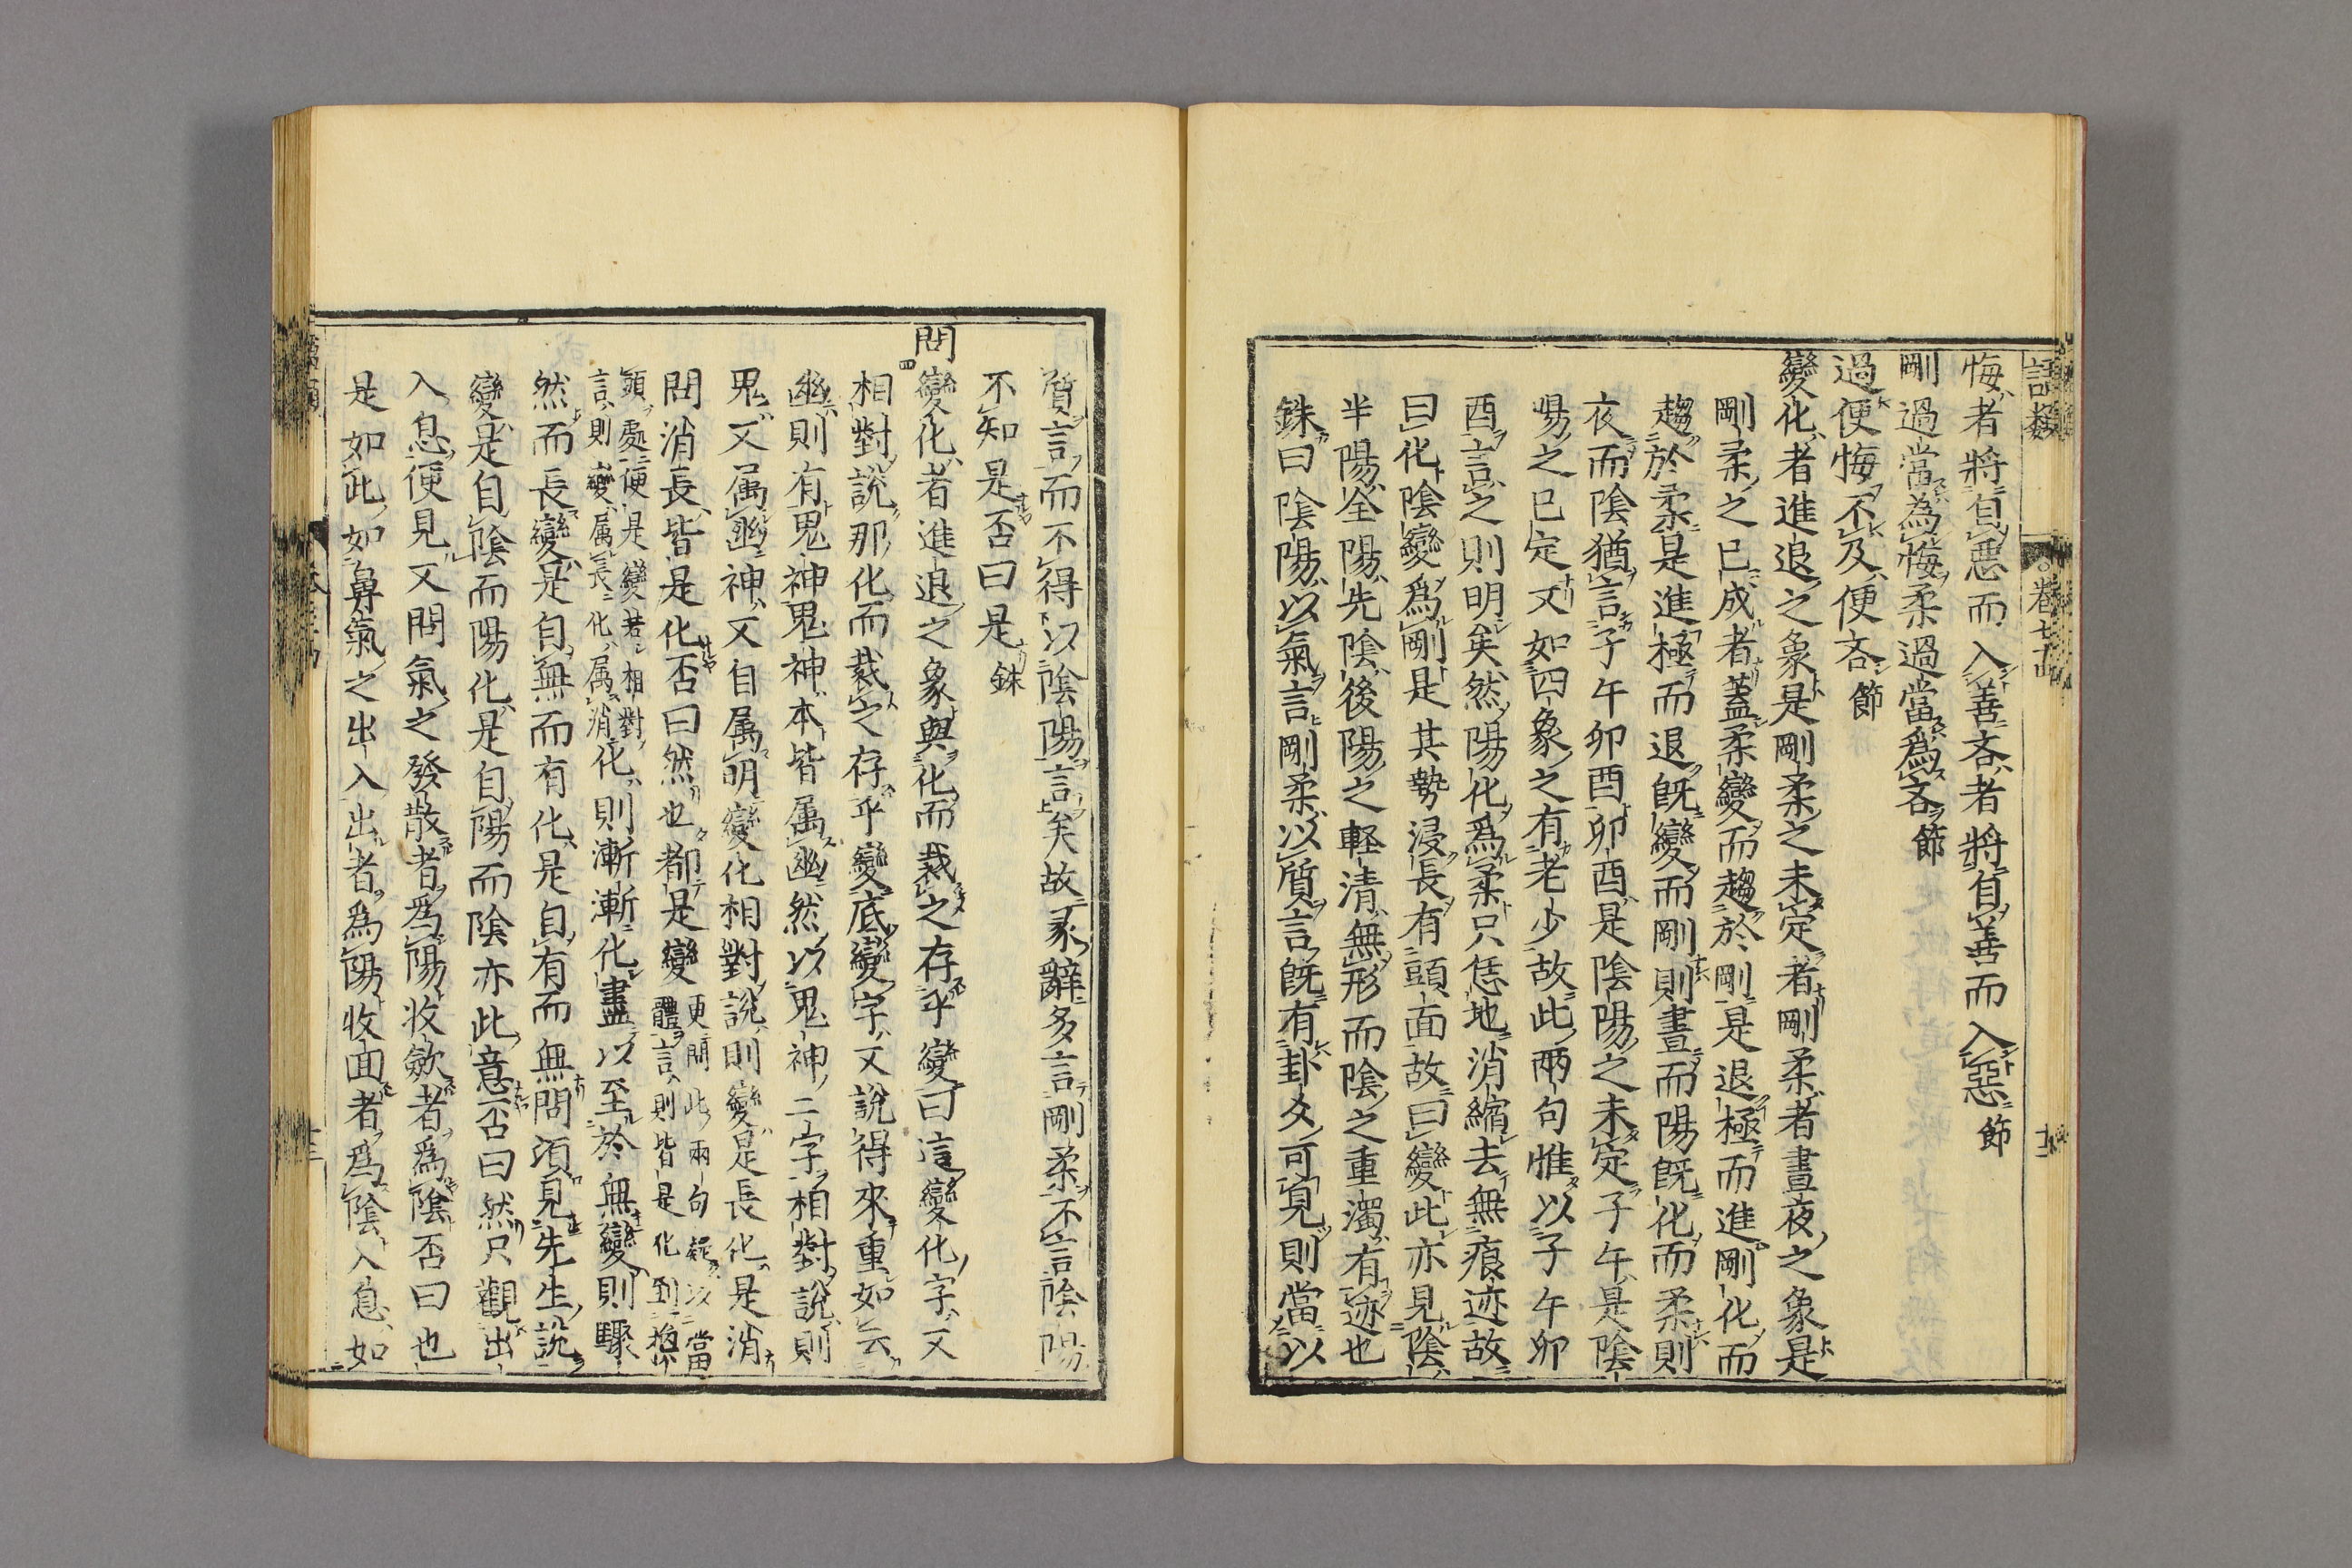 語類 卷七十四 十二
悔者將自惡而入善吝者將自善而入惡節
剛過當為悔柔過當爲吝節
過便悔不及便吝節
變化者進退之象是剛柔之未定者剛柔者晝夜之象是
剛柔之已成者蓋柔變而趨於剛是退極而進剛化而
趨於柔是進極而退既變而剛則晝而陽既化而柔則
夜而陰猶言子午卯酉卯酉是陰陽之未定子午是陰
陽之已定又如四象之有老少故此兩句惟以子午卯
酉言之則明矣然陽化爲柔只恁地消縮去無痕迹故
曰化陰變爲剛是其勢浸長有頭面故曰變此亦見陰
半陽全陽先陰後陽之軽清無形而陰之重濁有迹也
銖曰陰陽以氣言剛柔以質言既有卦爻可見則當以
質言而不得以陰陽言矣故彖辭多言剛柔不言陰陽
不知是否曰是銖
問變化者進退之象與化而裁之存乎變曰這變化字又
相對說那化而裁之存乎變底變字又說得來重如云
幽則有鬼神鬼神本皆属幽然以鬼神二字相對說則
鬼又属幽神又自属明變化相對說則變是長化是消
問消長皆是化否曰然也都是變更問此兩句疑以當
體言則皆是化到換
頭處便是變若相對
言則變属長化属消化則漸漸化盡以至於無變則驟
然而長變是自無而有化是自有而無問湏見先生說
變是自陰而陽化是自陽而陰亦此意否曰然只觀出
入息便見又問氣之發散者爲陽收歛者爲陰否曰也
是如此如鼻氣之出入出者爲陽收面者爲陰入息如